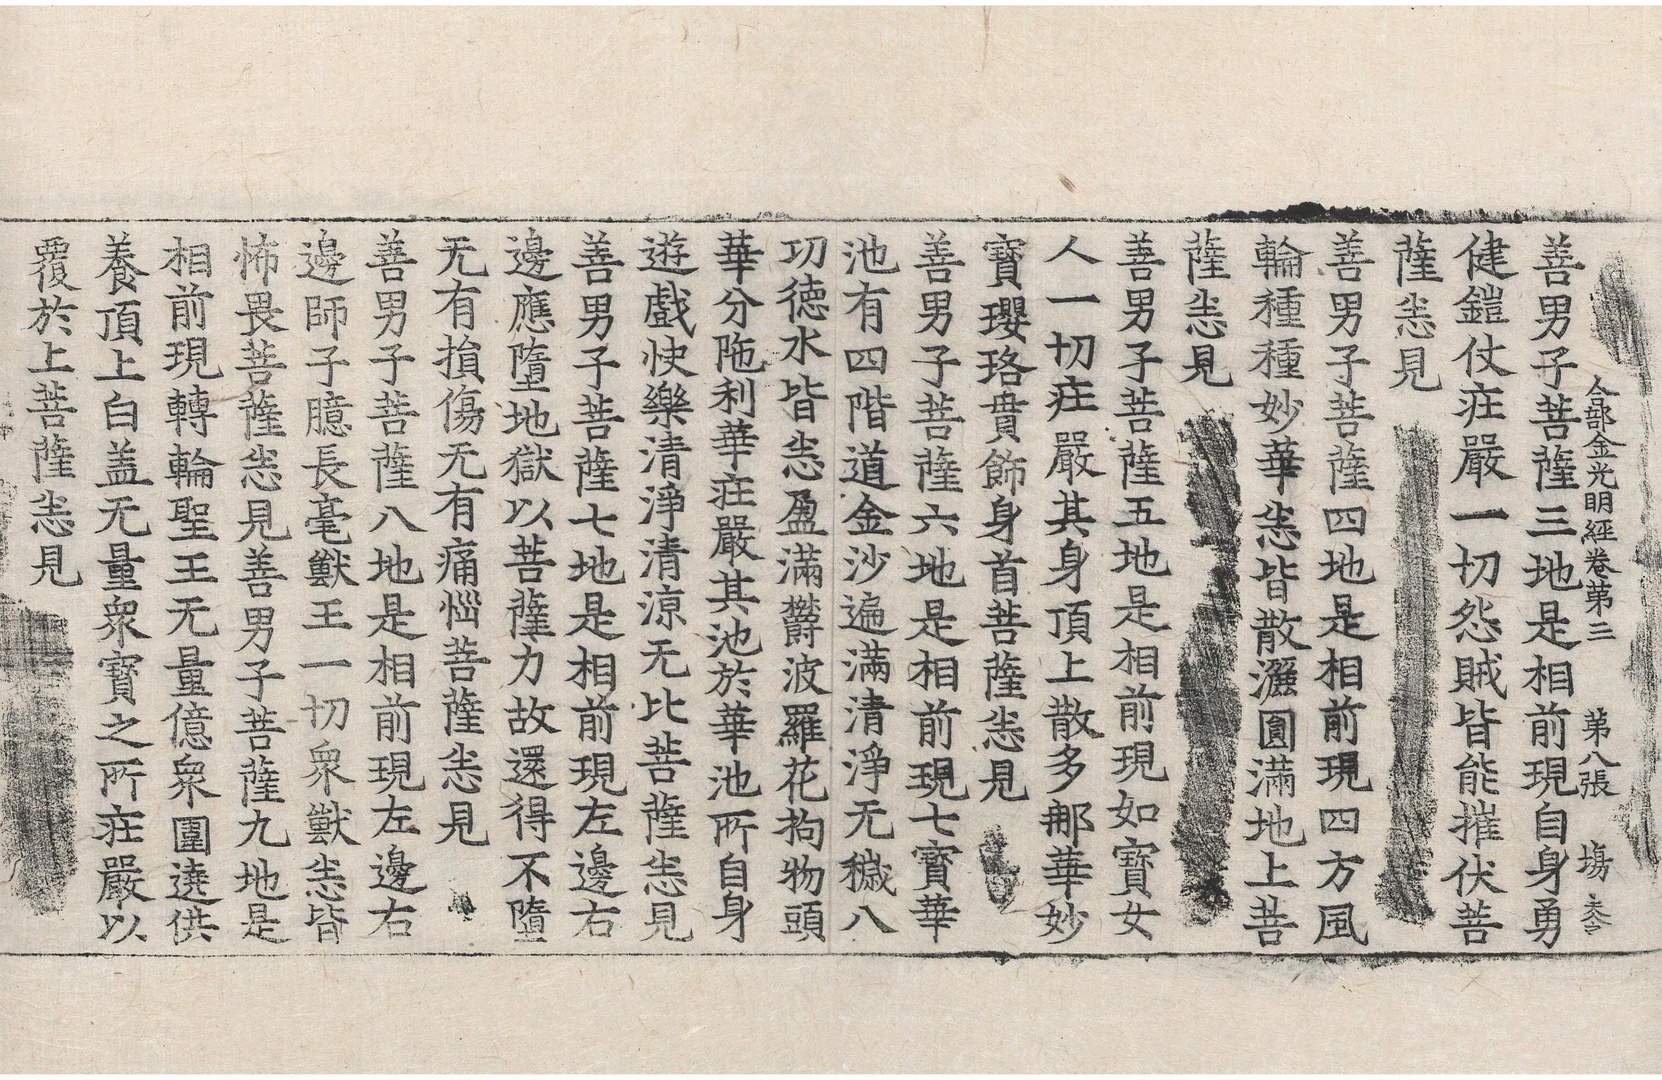 合部金光明經卷第三　第八張　塲
善男子菩薩三地是相前現自身勇
健鎧仗庄嚴一切怨賊皆能摧伏菩
薩悉見
善男子菩薩四地是相前現四方風
輪種種妙華悉皆散灑圓滿地上菩
薩悉見
善男子菩薩五地是相前現如寶女
人一切庄嚴其身頂上散多那華妙
寶瓔珞貫飾身首菩薩悉見
善男子菩薩六地是相前現七寶華
池有四階道金沙遍滿清淨无穢八
功德水皆悉盈滿欝波羅花拘物頭
華分陁利華庄嚴其池於華池所自身
遊戲快樂清淨清涼无比菩薩悉見
善男子菩薩七地是相前現左邊右
邊應墮地獄以菩薩力故還得不墮
无有損傷无有痛惱菩薩悉見
善男子菩薩八地是相前現左邊右
邊師子臆長毫獸王一切衆獸悉皆
怖畏菩薩悉見善男子菩薩九地是
相前現轉輪聖王无量億衆圍遶供
養頂上白盖无量衆寶之所庄嚴以
覆於上菩薩悉見